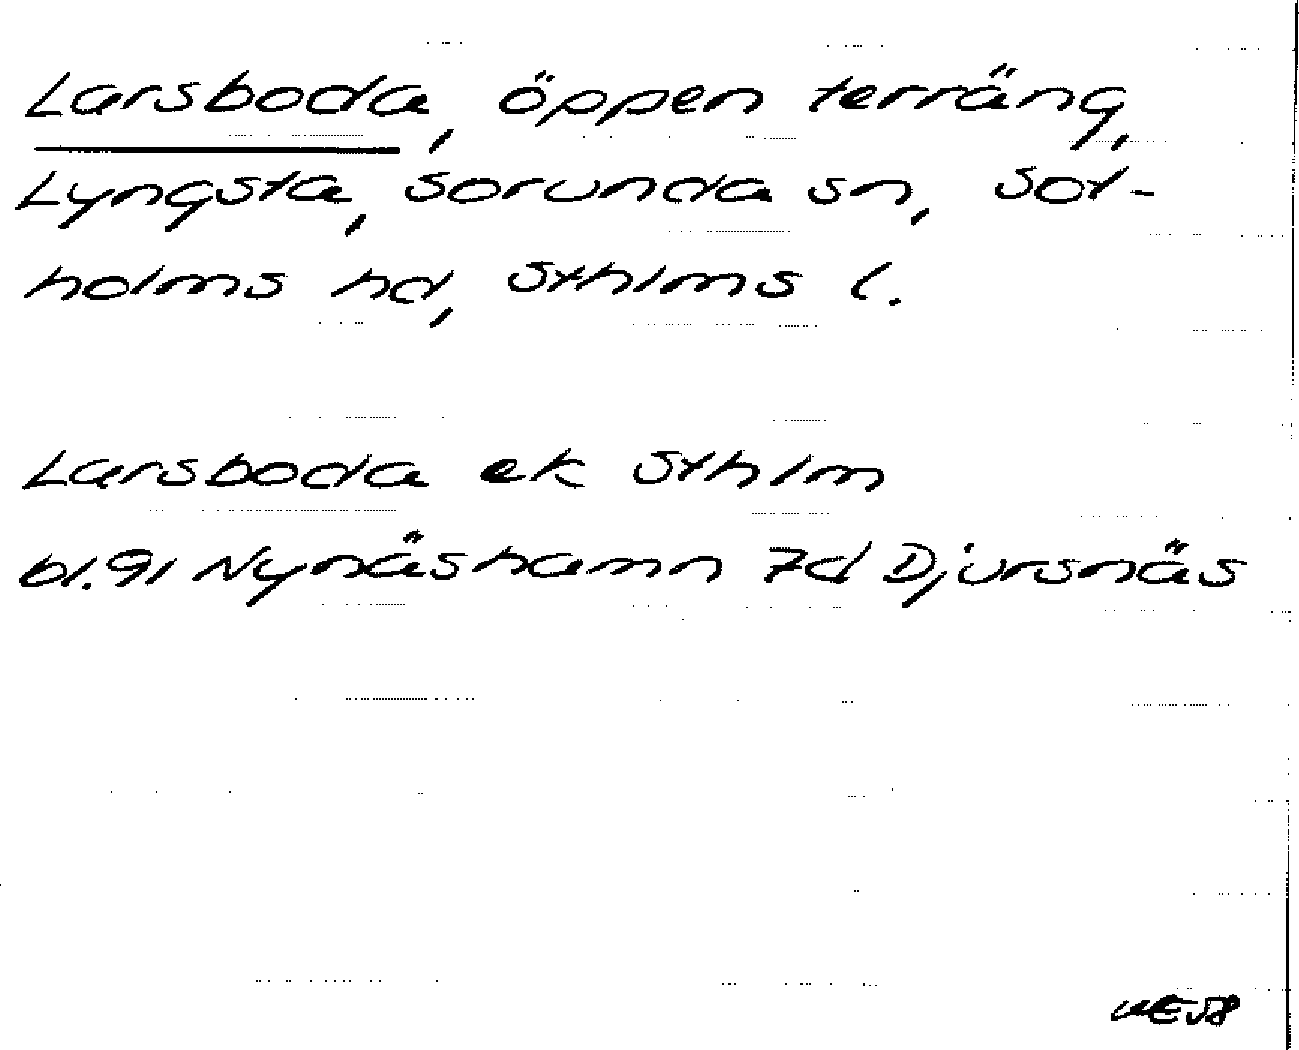 Larsboda, öppen terräng,
Lyngsta, Sorunda sn, Sot-
holms hd, Sthlms l.
Larsboda ek Sthlm
bl. 91 Nynäshamn 7d Djursnäs